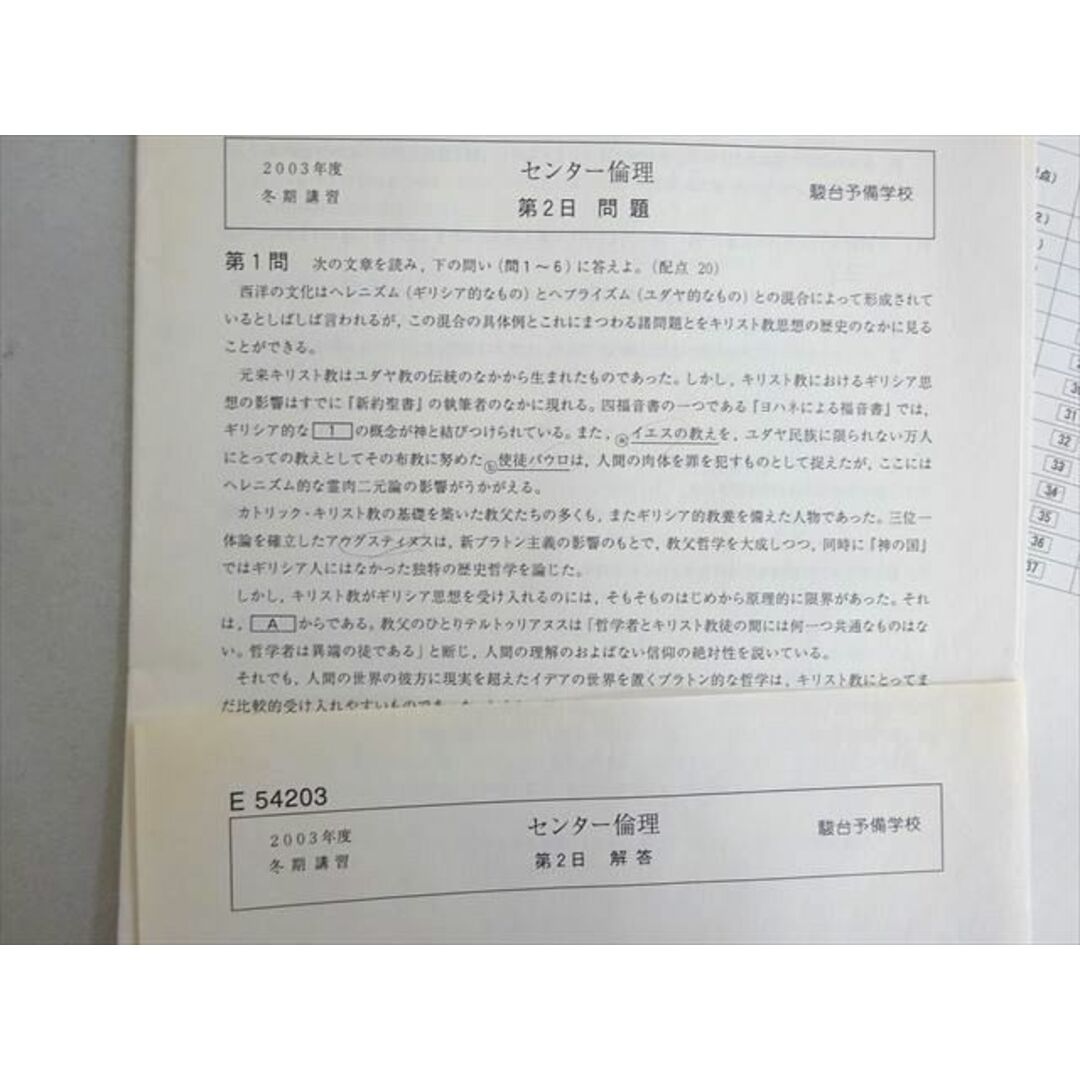 2003年度
冬期講習
センター倫理
第2日 問題
駿台予備学校
第1問 次の文章を読み,下の問い(問1~6)に答えよ。(配点 20)
西洋の文化はヘレニズム(ギリシア的なもの)とヘブライズム(ユダヤ的なもの)との混合によって形成されて
いるとしばしば言われるが,この混合の具体例とこれにまつわる諸問題とをキリスト教思想の歴史のなかに見る
ことができる。
元来キリスト教はユダヤ教の伝統のなかから生まれたものであった。しかし,キリスト教におけるギリシア思
想の影響はすでに『新約聖書』の執筆者のなかに現れる。四福音書の一つである『ヨハネによる福音書』では,
ギリシア的な 1 の概念が神と結びつけられている。また,ⓐイエスの教えを,ユダヤ民族に限られない万人
にとっての教えとしてその布教に努めたⓑ使徒パウロは,人間の肉体を罪を犯すものとして捉えたが,ここには
ヘレニズム的な霊肉二元論の影響がうかがえる。
カトリック・キリスト教の基礎を築いた教父たちの多くも,またギリシア的教養を備えた人物であった。三位一
体論を確立したアウグスティヌスは,新プラトン主義の影響のもとで,教父哲学を大成しつつ,同時に『神の国』
ではギリシア人にはなかった独特の歴史哲学を論じた。
しかし,キリスト教がギリシア思想を受け入れるのには,そもそものはじめから原理的に限界があった。それ
は, A からである。教父のひとりテルトゥリアヌスは「哲学者とキリスト教徒の間には何一つ共通なものはな
い。哲学者は異端の徒である」と断じ,人間の理解のおよばない信仰の絶対性を説いている。
それでも,人間の世界の彼方に現実を超えたイデアの世界を置くプラトン的な哲学は,キリスト教にとってま
だ比較的受け入れやすいものであった
E 54203
2003年度
冬期講習
センター倫理
第2日 解答
駿台予備学校
点)
2)
)
30
31
32
33
34
35
36
37